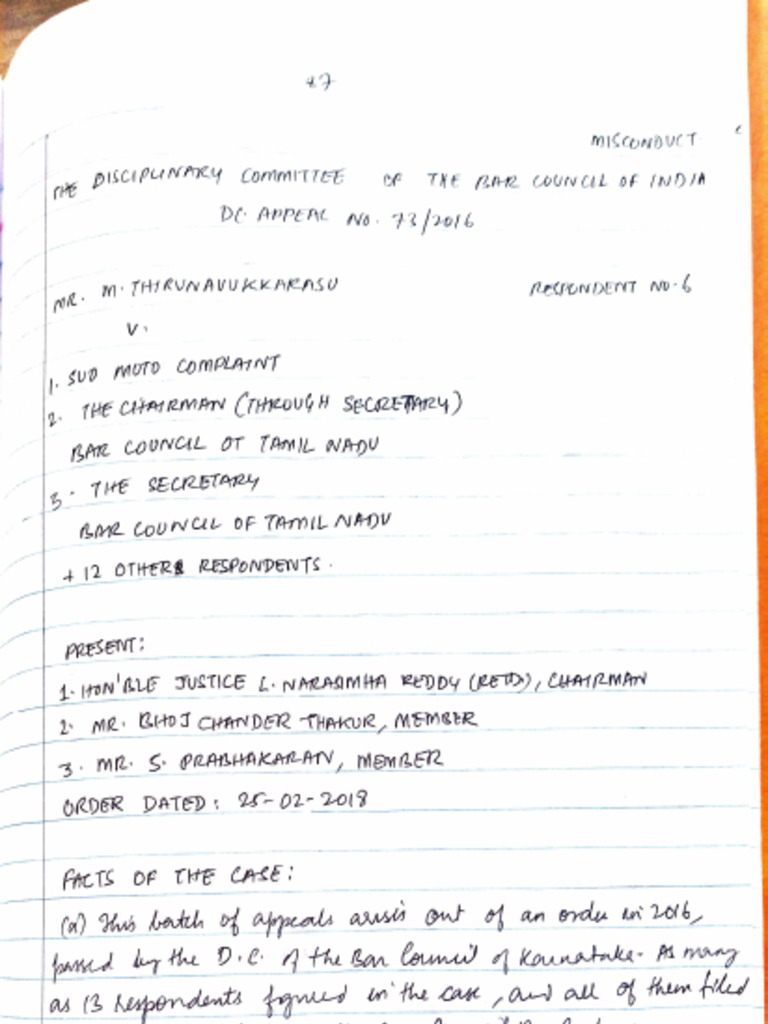 47
MISCONDUCT
THE DISCIPLINARY COMMITTEE OF THE BAR COUNCIL OF INDIA
DC. APPEAL NO. 73/2016
MR. M. THIRUNAVUKKARASU RESPONDENT NO. 6
V.
1. SUO MOTO COMPLAINT
2. THE CHAIRMAN (THROUGH SECRETARY)
BAR COUNCIL OT TAMIL NADU
3. THE SECRETARY
BAR COUNCIL OF TAMIL NADU
+ 12 OTHERS RESPONDENTS.
PRESENT:
1. HON'BLE JUSTICE L. NARASIMHA REDDY (RETD), CHAIRMAN
2. MR. BHOJ CHANDER THAKUR, MEMBER
3. MR. S. PRABHAKARAN, MEMBER
ORDER DATED: 25-02-2018
FACTS OF THE CASE:
(a) This batch of appeals arisis out of an order in 2016,
passed by the D.C. of the Bar Council of Karnataka. As many
as 13 respondents figured in the case, and all of them filed